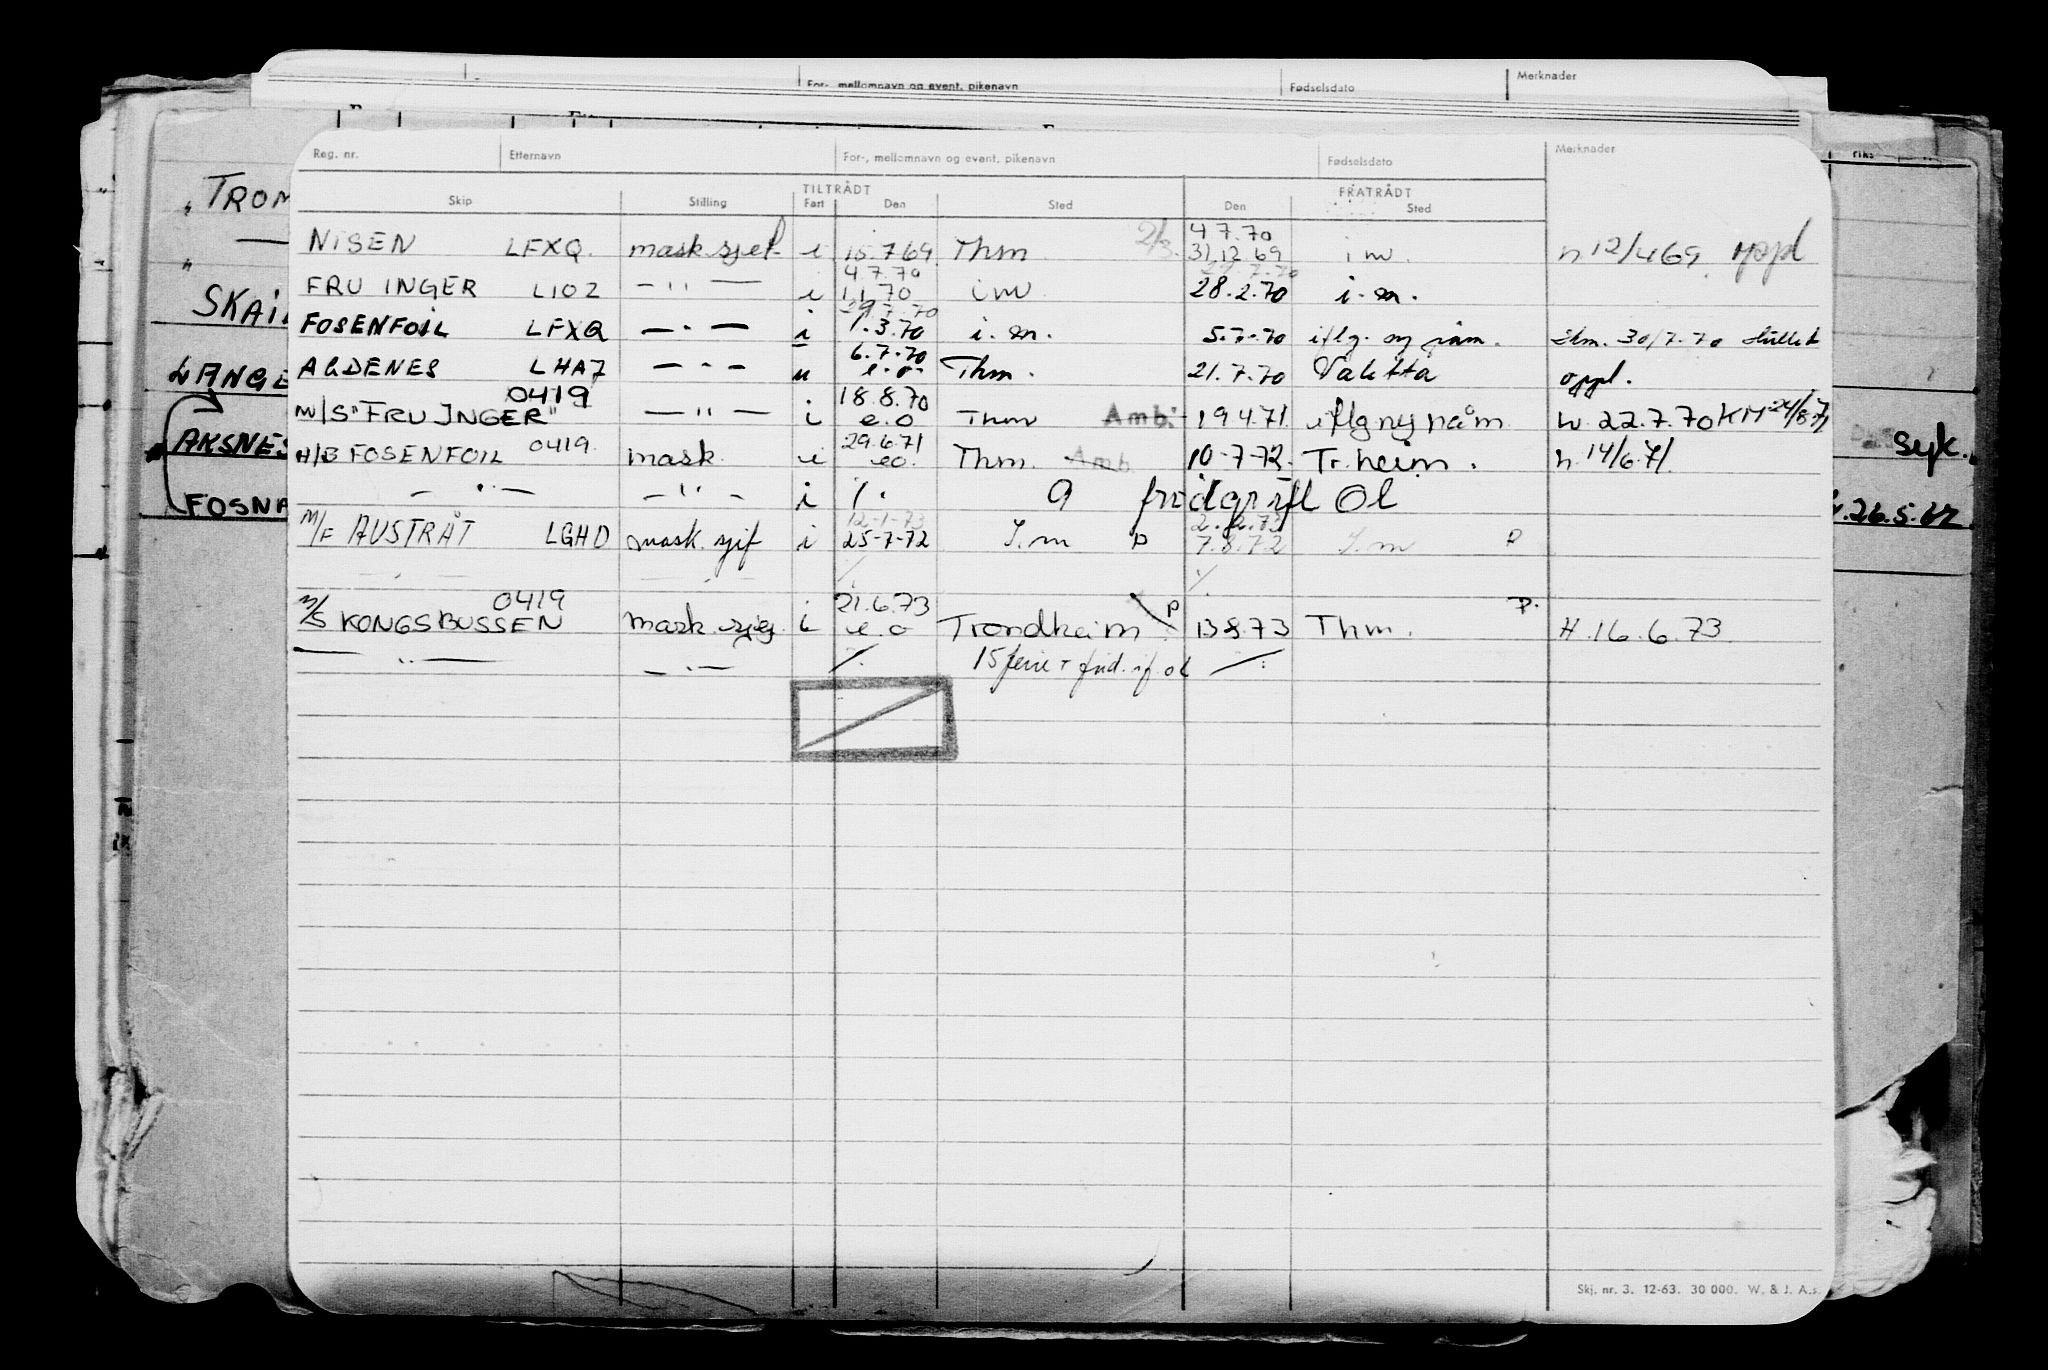 For-, mellomnavn og event. pikenavn Fødselsdato Merknader
Reg. nr. Etternavn For-, mellomnavn og event. pikenavn Fødselsdato Merknader
TILTRÅDT FRATRÅDT
Skip Stilling Fart Den Sted Den Sted
4 7.70
NISEN LFXQ. mask.sjef i 15.7 69 Thm 2/3. 31.12 69 i m. h 12/4 69 oppl
4.7.70 29.7.70
FRU INGER LIOZ — " — i 1.1.70 i m 28.2.70 i.m.
29.7.70
FOSENFOIL LFXQ — " — i 1.3.70 i.m. 5.7.70 iflg. ny påm. Skm. 30/7.70
6.7.70
AGDENES LHA7 — " — u e.o. Thm. 21.7.70 Valetta oppl.
0419 18.8.70
M/S "FRU INGER" — " — i e.o Thm Amb. 19 4 71. iflg ny påm. h. 22.7.70 KM 24/8.71
29.6.71
H/B FOSENFOIL 0419. mask. i eo. Thm. Amb 10-7-72. Tr.heim. h. 14/6.71.
— " — — " — i /. 9 fridgr ifl Ol
12-1-73 2.2.73
M/F AUSTRÅT LGHD mask. sjef i 25-7-72 I.m P 7.8.72 I.m P
— " — — " — /. /.
0419 21.6.73 P P.
M/S KONGSBUSSEN mask.sjef. i e.o Trondheim. 13 8.73 Thm. H.16.6.73.
— " — — " — /. 15 ferie + frid. if ol /.
TROM
SKAI
LANGE
AKSNES
FOSNA
syk.
26.5.67
Skj. nr. 3. 12-63. 30 000. W. & J. A.s.